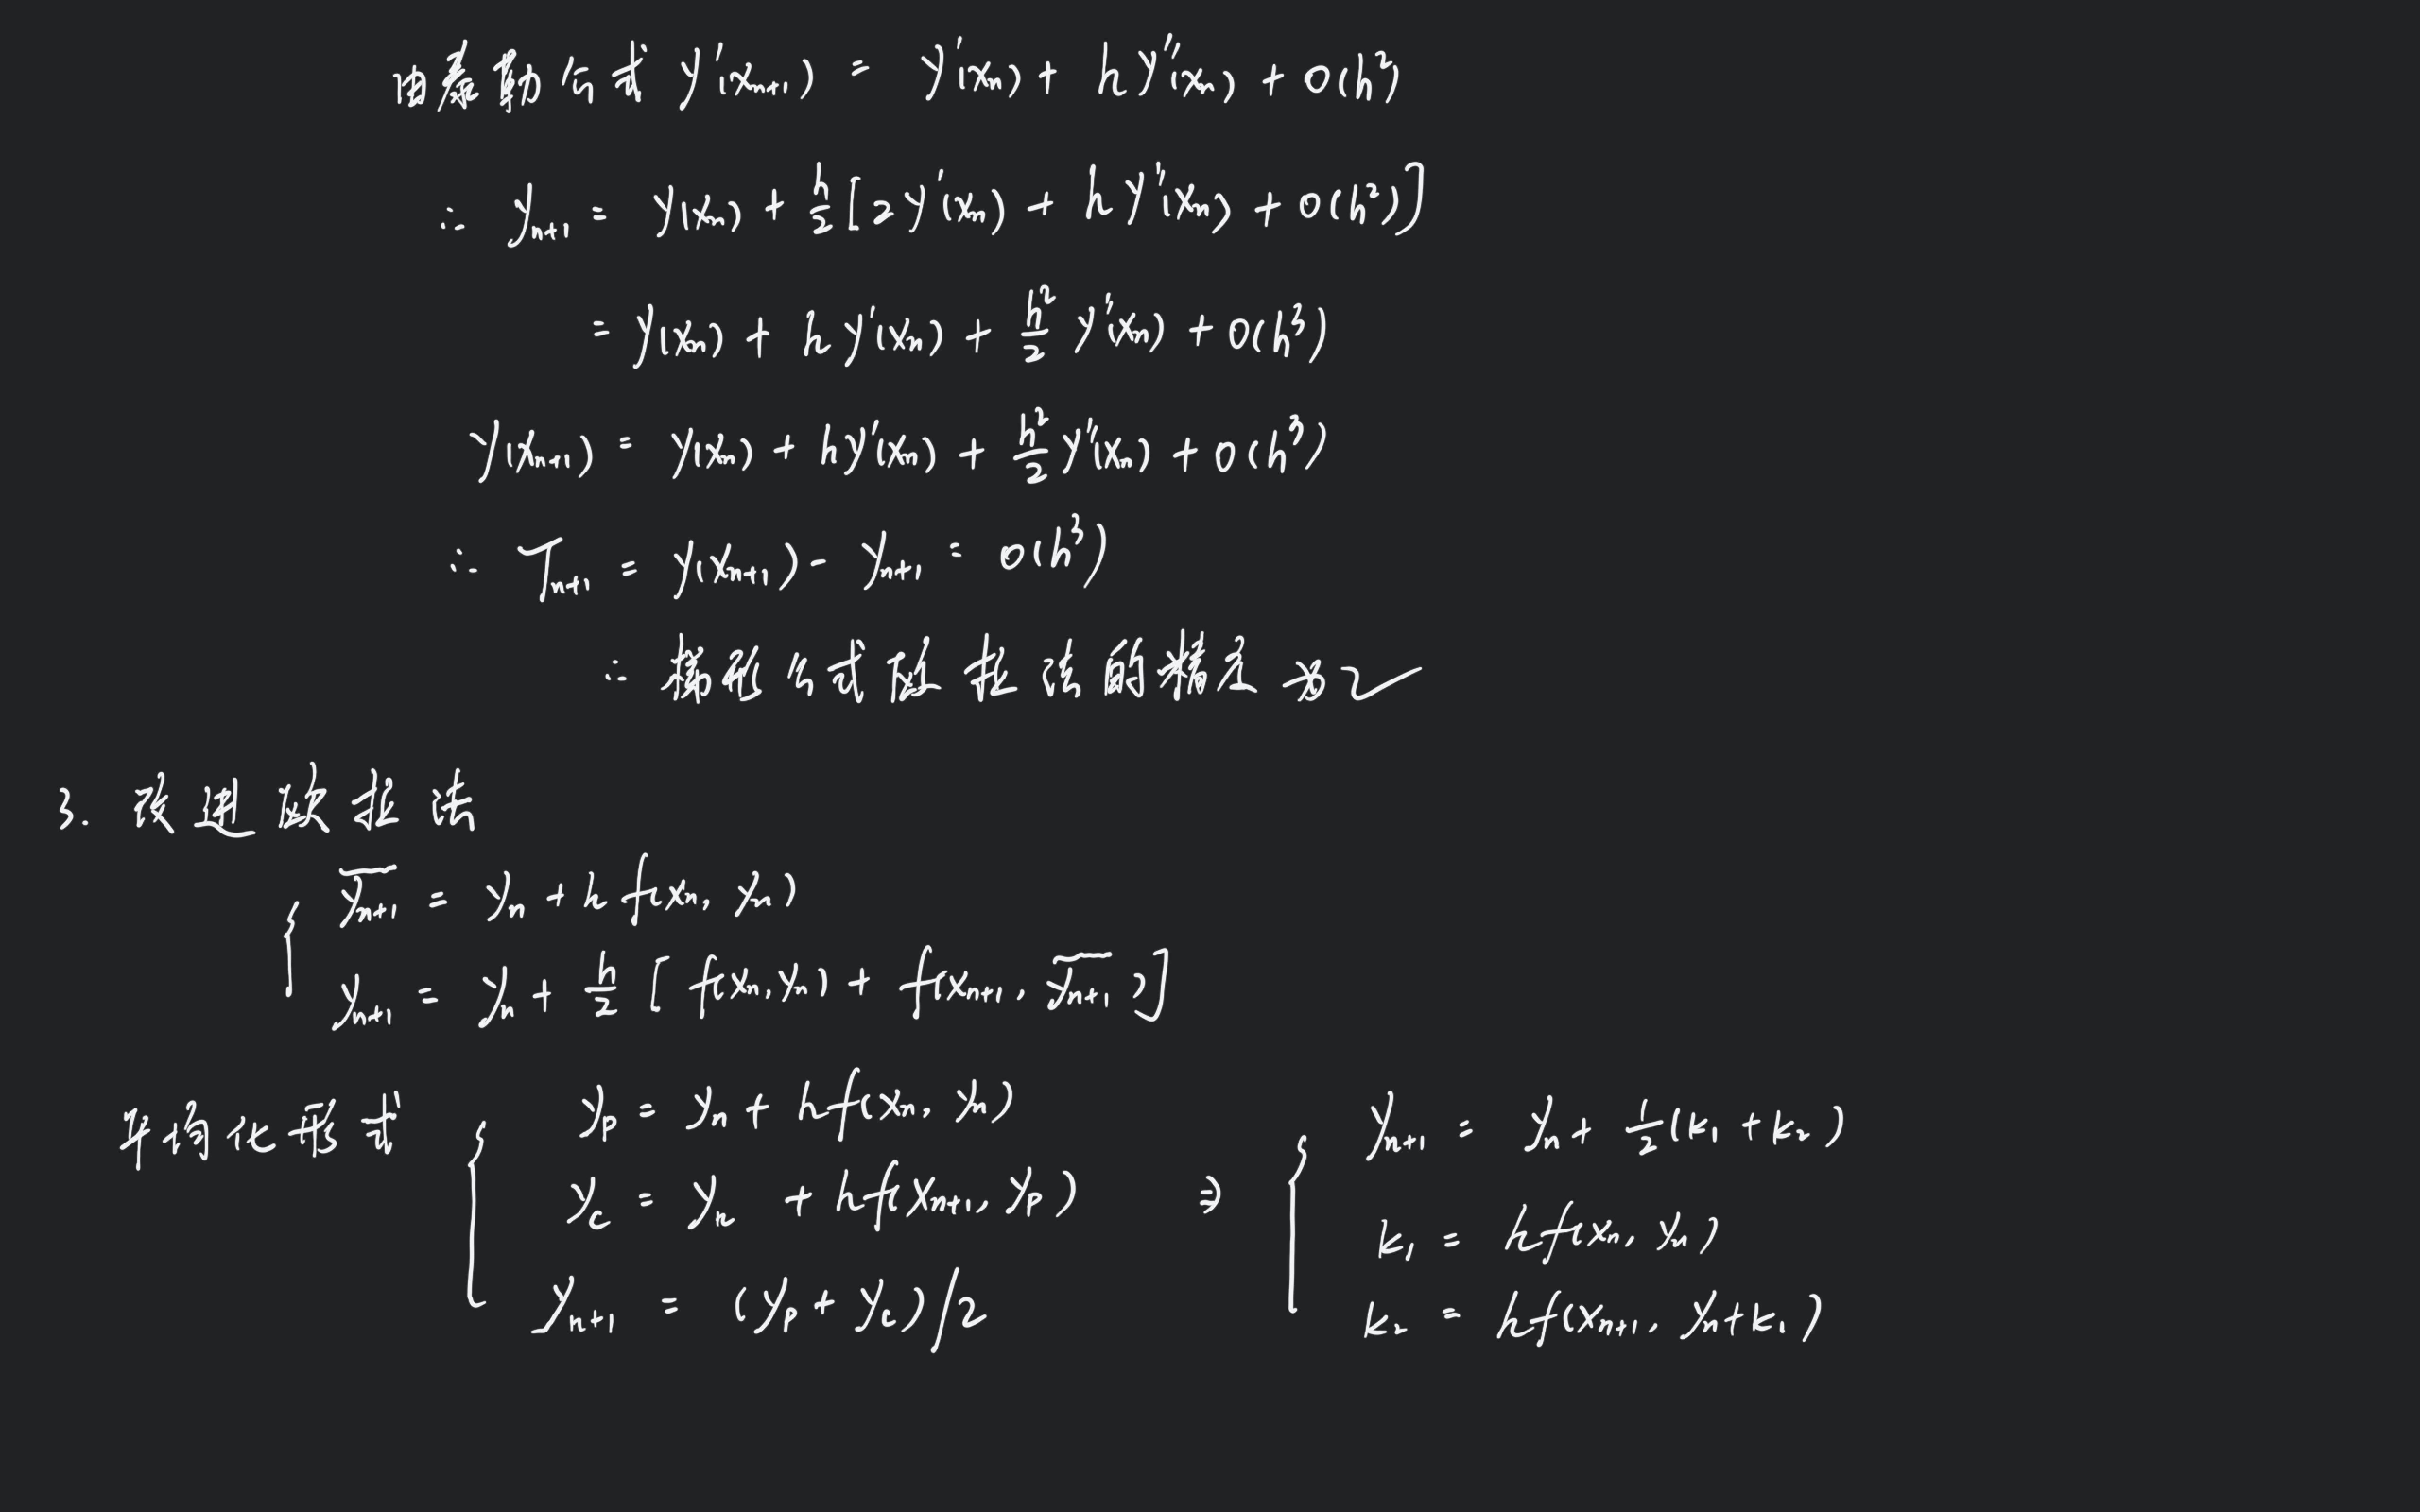 由泰勒公式 y'(xₙ₊₁) = y'(xₙ) + hy''(xₙ) + O(h²)
∴ yₙ₊₁ = y(xₙ) + h/2 [2y'(xₙ) + hy''(xₙ) + O(h²)]
= y(xₙ) + hy'(xₙ) + h²/2 y''(xₙ) + O(h³)
y(xₙ₊₁) = y(xₙ) + hy'(xₙ) + h²/2 y''(xₙ) + O(h³)
∴ Tₙ₊₁ = y(xₙ₊₁) - yₙ₊₁ = O(h³)
∴ 梯形公式欧拉法的精度为2
3. 改进欧拉法
{ y̅ₙ₊₁ = yₙ + hf(xₙ, yₙ)
yₙ₊₁ = yₙ + h/2 [f(xₙ, yₙ) + f(xₙ₊₁, y̅ₙ₊₁)]
平均化形式 { yₚ = yₙ + hf(xₙ, yₙ)
y_c = yₙ + hf(xₙ₊₁, yₚ)
yₙ₊₁ = (yₚ + y_c)/2
⇒ { yₙ₊₁ = yₙ + 1/2(k₁ + k₂)
k₁ = hf(xₙ, yₙ)
k₂ = hf(xₙ₊₁, yₙ + k₁)